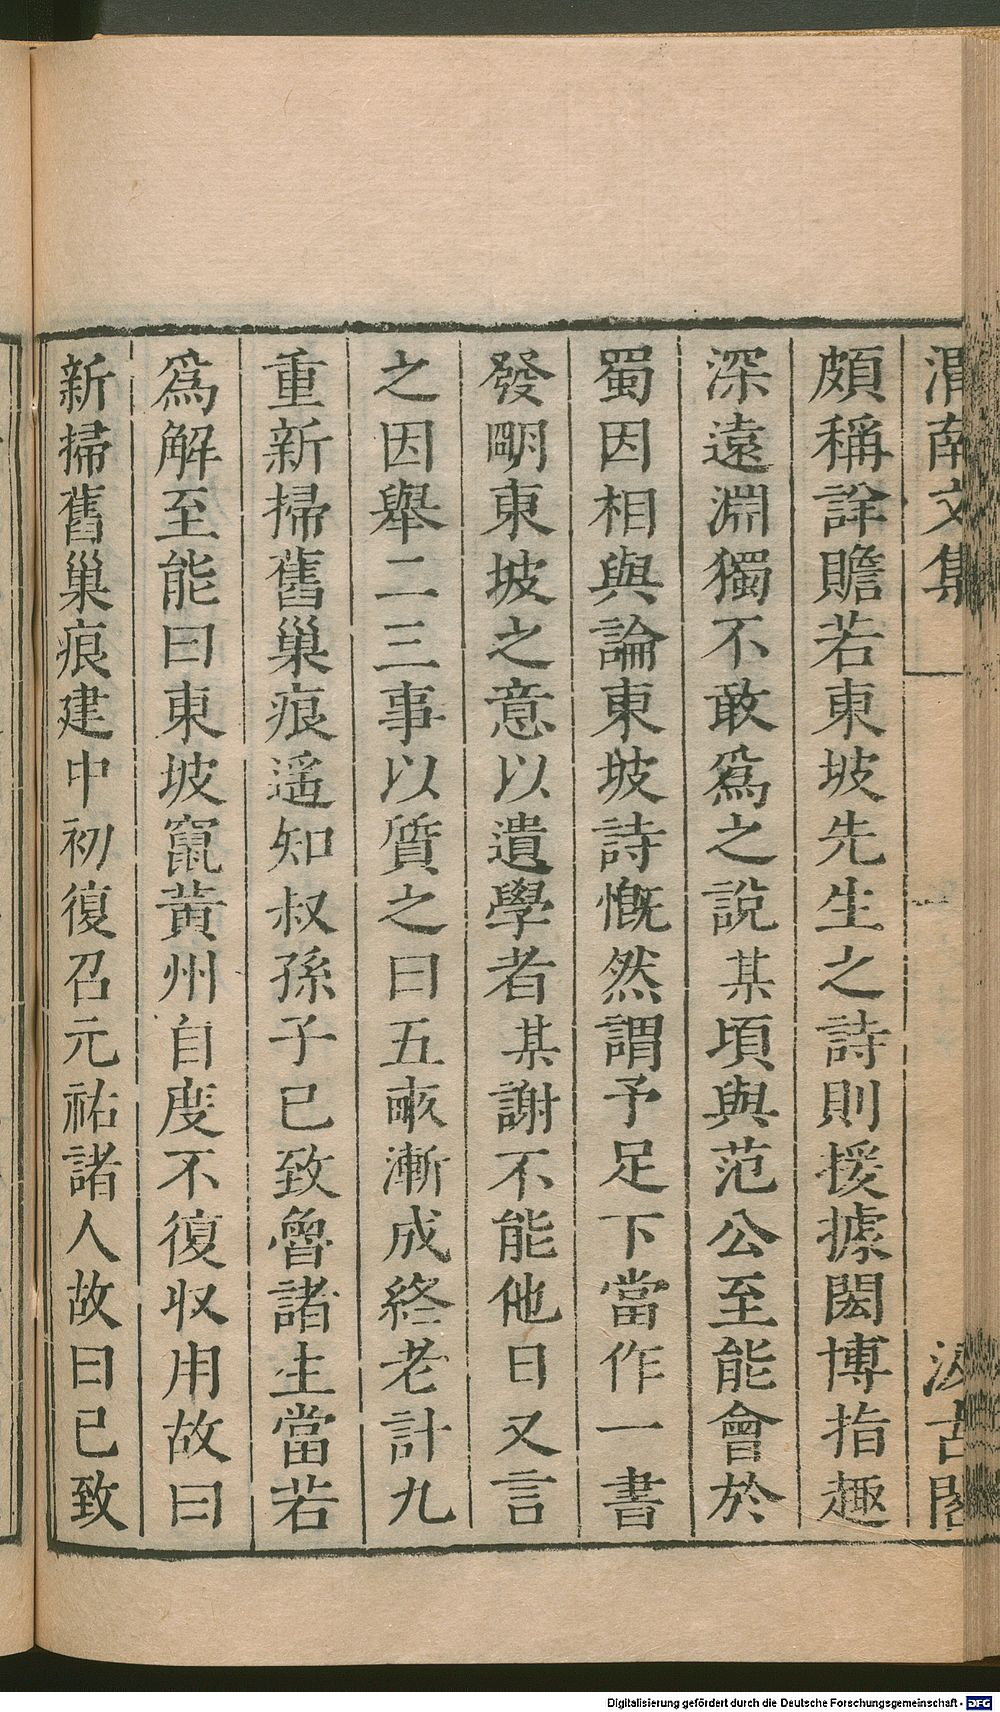 渭南文集 汲古閣
頗稱詳贍若東坡先生之詩則援據閎博指趣
深遠淵獨不敢爲之說某頃與范公至能會於
蜀因相與論東坡詩慨然謂予足下當作一書
發明東坡之意以遺學者某謝不能他日又言
之因舉二三事以質之曰五畝漸成終老計九
重新掃舊巢痕遥知叔孫子已致魯諸生當若
爲解至能曰東坡竄黃州自度不復収用故曰
新掃舊巢痕建中初復召元祐諸人故曰已致
Digitalisierung gefördert durch die Deutsche Forschungsgemeinschaft - DFG